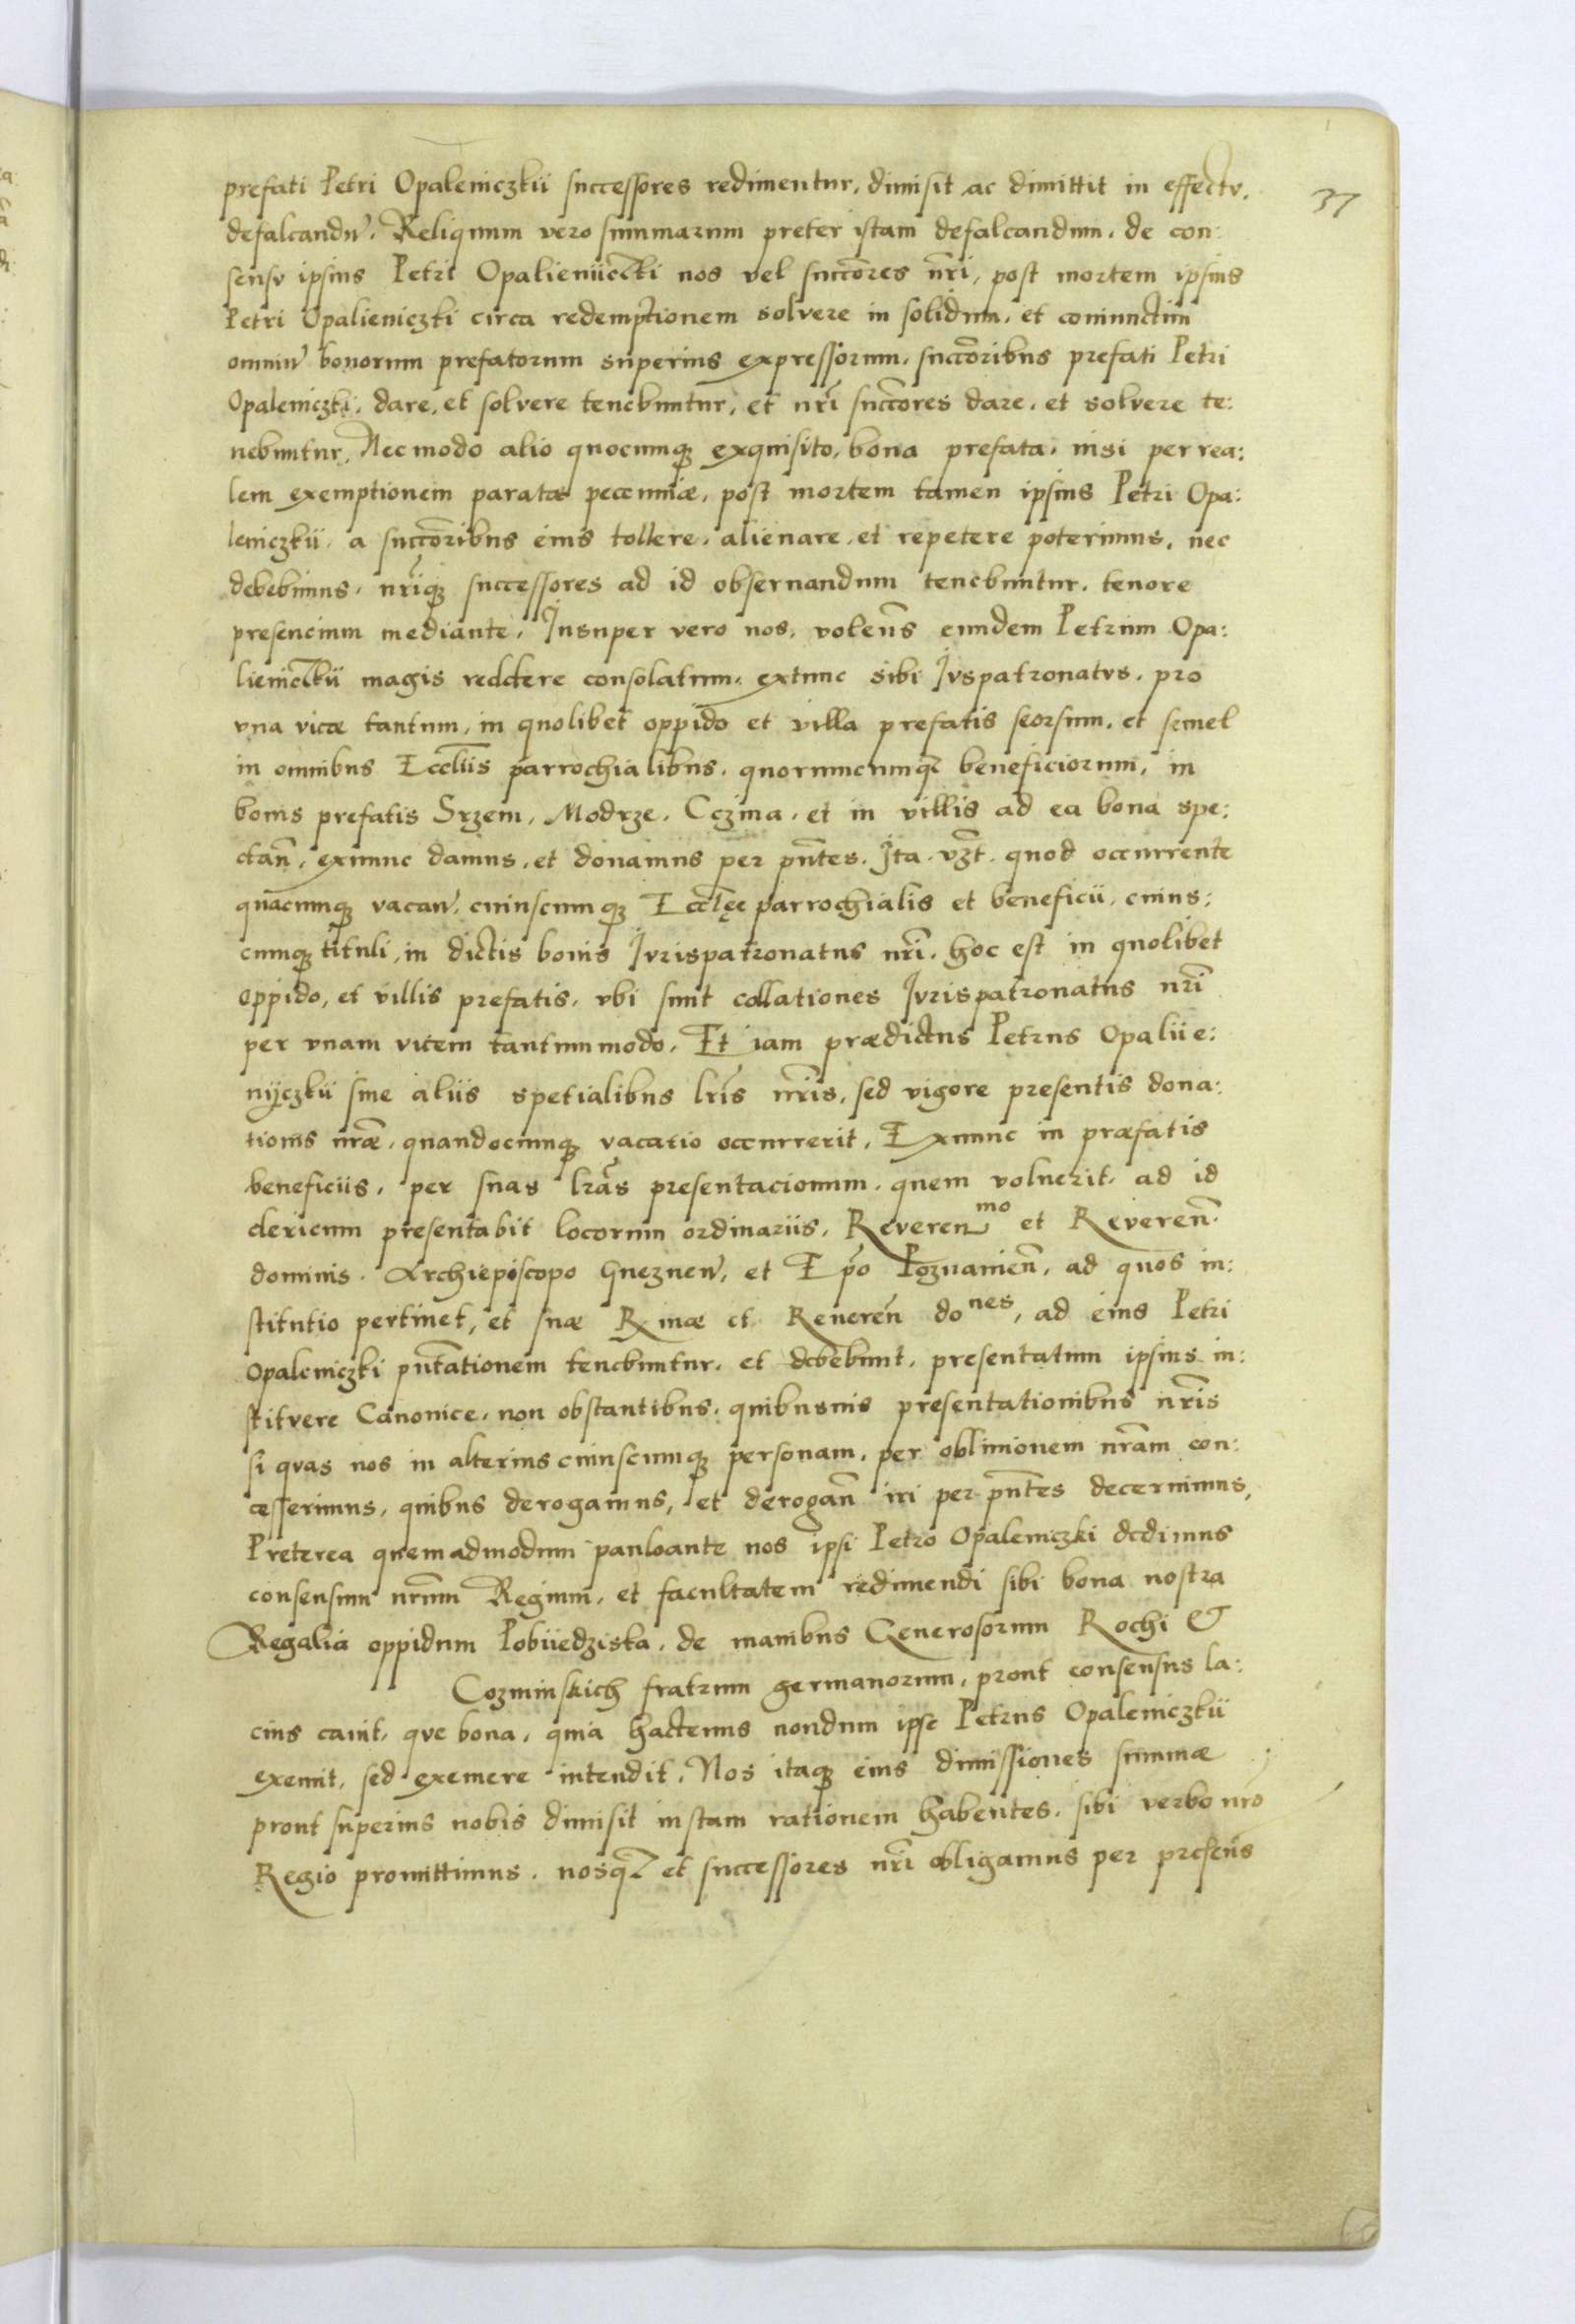 37
prefati Petri Opaleniczkii successores redimentur, dimisit ac dimittit in effectu.
defalcandū. Reliquum vero summarum preter istam defalcandum, de con:
sensu ipsius Petri Opalieniiczki nos vel succōres nr̄i, post mortem ipsius
Petri Opalieniczki circa redemptionem solvere in solidum, et coniunctim
omniū bonorum prefatorum superius expressorum, succōribus prefati Petri
Opaleniczki, dare, et solvere tenebuntur, et nr̄i succōres dare, et solvere te:
nebuntur. Nec modo alio quocumq; exquisito, bona prefata, nisi per rea:
lem exemptionem paratæ pecuniæ, post mortem tamen ipsius Petri Opa:
leniczkii, a succōribus eius tollere, alienare, et repetere poterimus, nec
debebimus, nr̄iq; successores ad id observandum tenebuntur, tenore
presencium mediante. Insuper vero nos, volen̄s eundem Petrum Opa:
lieniczkii magis reddere consolatum, extunc sibi Juspatronatus, pro
una vicæ tantum, in quolibet oppido et villa prefatis seorsum, et semel
in omnibus Eccl̄iis parrochialibus, quorumcumq; beneficiorum, in
bonis prefatis Srzem, Modrze, Cczma, et in villis ad ea bona spe:
ctan̄, exnunc damus, et donamus per pn̄tes. Ita vzt. quod occurrente
quacumq; vacan̄, cuiuscumq; Eccl̄ęe parrochialis et beneficii, cuius:
cumq; tituli, in dictis bonis Jurispatronatus nr̄i, hoc est in quolibet
oppido, et villis prefatis, ubi sunt collationes Jurispatronatus nr̄i
per unam vicem tantummodo. Et iam prædictus Petrus Opaliie:
nijczkii sine aliis spetialibus lr̄is nr̄is, sed vigore presentis dona:
tionis nr̄æ, quandocumq; vacatio occurrerit, Exnunc in præfatis
beneficiis, per suas lr̄as presentacionum, quem voluerit, ad id
clericum presentabit locorum ordinariis, Reveren^mo et Reveren̄.
dominis. Archiepiscopo Gneznen̄, et Ep̄o Poznanien̄, ad quos in:
stitutio pertinet, et suæ R̄mæ et Reveren̄ do^nes, ad eius Petri
Opaleniczki pn̄tationem tenebuntur, et debebunt, presentatum ipsius in:
stituere Canonice, non obstantibus, quibusvis presentationibus nr̄is
si quas nos in alterius cuiuscumq; personam, per oblivionem nr̄am con:
cesserimus, quibus derogamus, et derogan̄ iri per pn̄tes decernimus,
Preterea quemadmodum pauloante nos ipsi Petro Opaleniczki dedimus
consensum nr̄um Regium, et facultatem redimendi sibi bona nostra
Regalia oppidum Pobiiedziska, de manibus Generosorum Rochi &
Cozminskich fratrum germanorum, prout consensus la:
cius canit, que bona, quia hactenus nondum ipse Petrus Opaleniczkii
exemit, sed exemere intendit. Nos itaq; eius dimissiones summæ
prout superius nobis dimisit iustam rationem habentes, sibi verbo nr̄o
Regio promittimus, nosq; et successores nr̄i obligamus per presen̄s